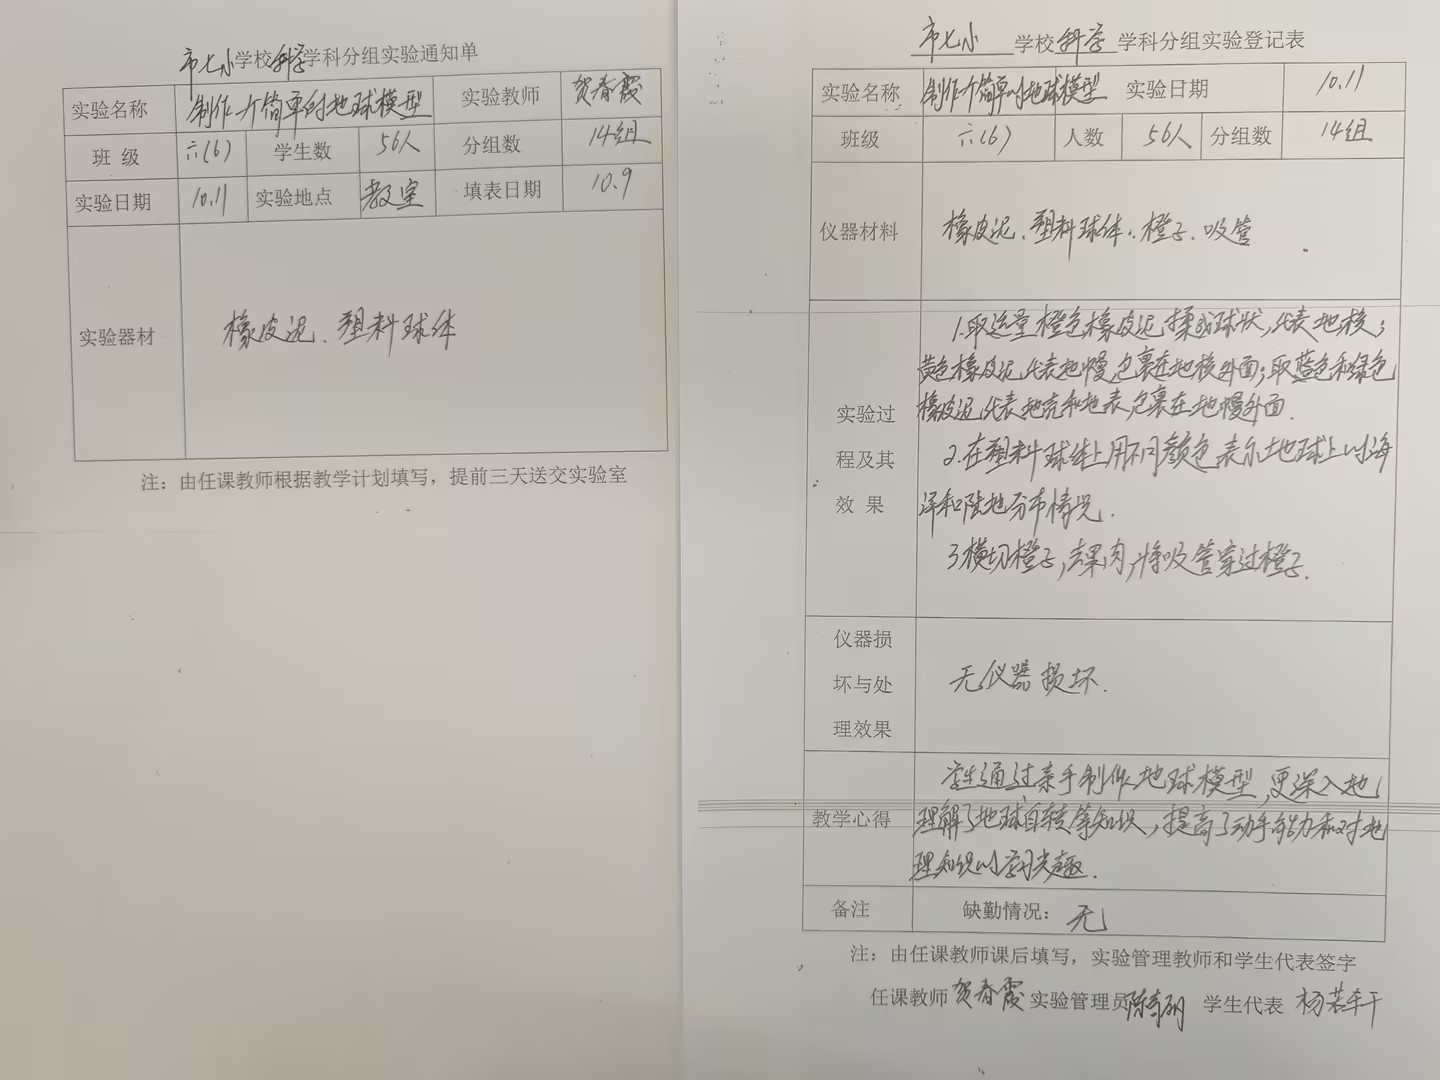 市七小学校科学学科分组实验通知单
实验名称 制作一个简单的地球模型 实验教师 贺春霞
班 级 六(6) 学生数 56人 分组数 14组
实验日期 10.11 实验地点 教室 填表日期 10.9
实验器材 橡皮泥、塑料球体
注：由任课教师根据教学计划填写，提前三天送交实验室
市七小 学校 科学 学科分组实验登记表
实验名称 制作一个简单的地球模型 实验日期 10.11
班级 六(6) 人数 56人 分组数 14组
仪器材料 橡皮泥、塑料球体、橙子、吸管
实验过
程及其
效 果
1.取适量橙色橡皮泥揉成球状，代表地核；
黄色橡皮泥代表地幔，包裹在地核外面；取蓝色和绿色
橡皮泥代表地壳和地表，包裹在地幔外面.
2.在塑料球体上用不同颜色表示地球上的海
洋和陆地分布情况.
3.横切橙子，去果肉，将吸管穿过橙子.
仪器损
坏与处
理效果
无仪器损坏.
教学心得
学生通过亲手制作地球模型，更深入地
理解了地球自转等知识，提高了动手能力和对地
理知识的学习兴趣.
备注 缺勤情况：无
注：由任课教师课后填写，实验管理教师和学生代表签字
任课教师 贺春霞 实验管理员 学生代表